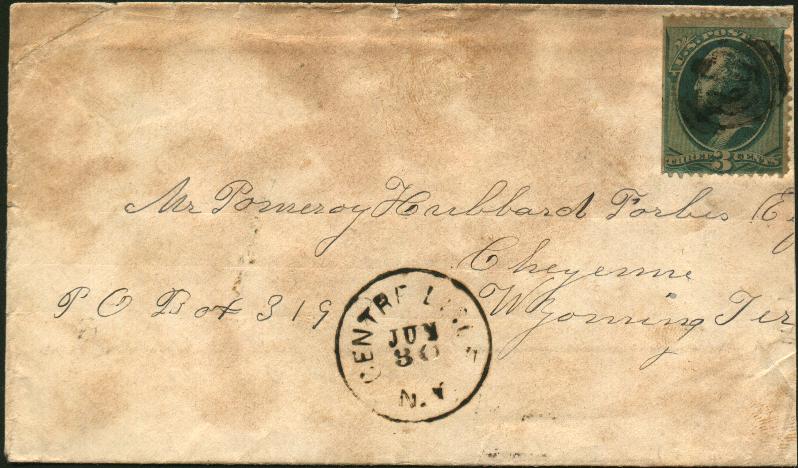 U.S. POST
THREE 3 CENTS
Mr Pomeroy Hubbard Forbes E
Cheyenne
P O Box 319 Wyoming Ter
CENTRE LISLE
JUN
30
N.Y.